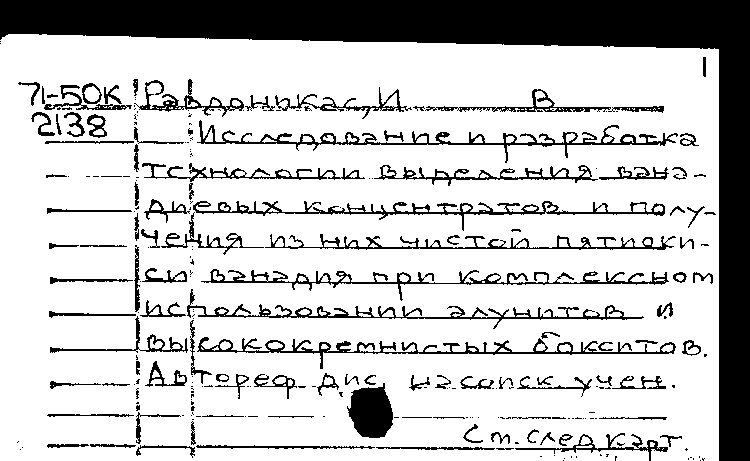 1
71-50К Равдоникас, И В
2138 Исследование и разработка
технологии выделения вана-
диевых концентратов и полу-
чения из них чистой пятиоки-
си ванадия при комплексном
использовании алунитов и
высококремнистых бокситов.
Автореф дис, на соиск учен.
См. след карт.